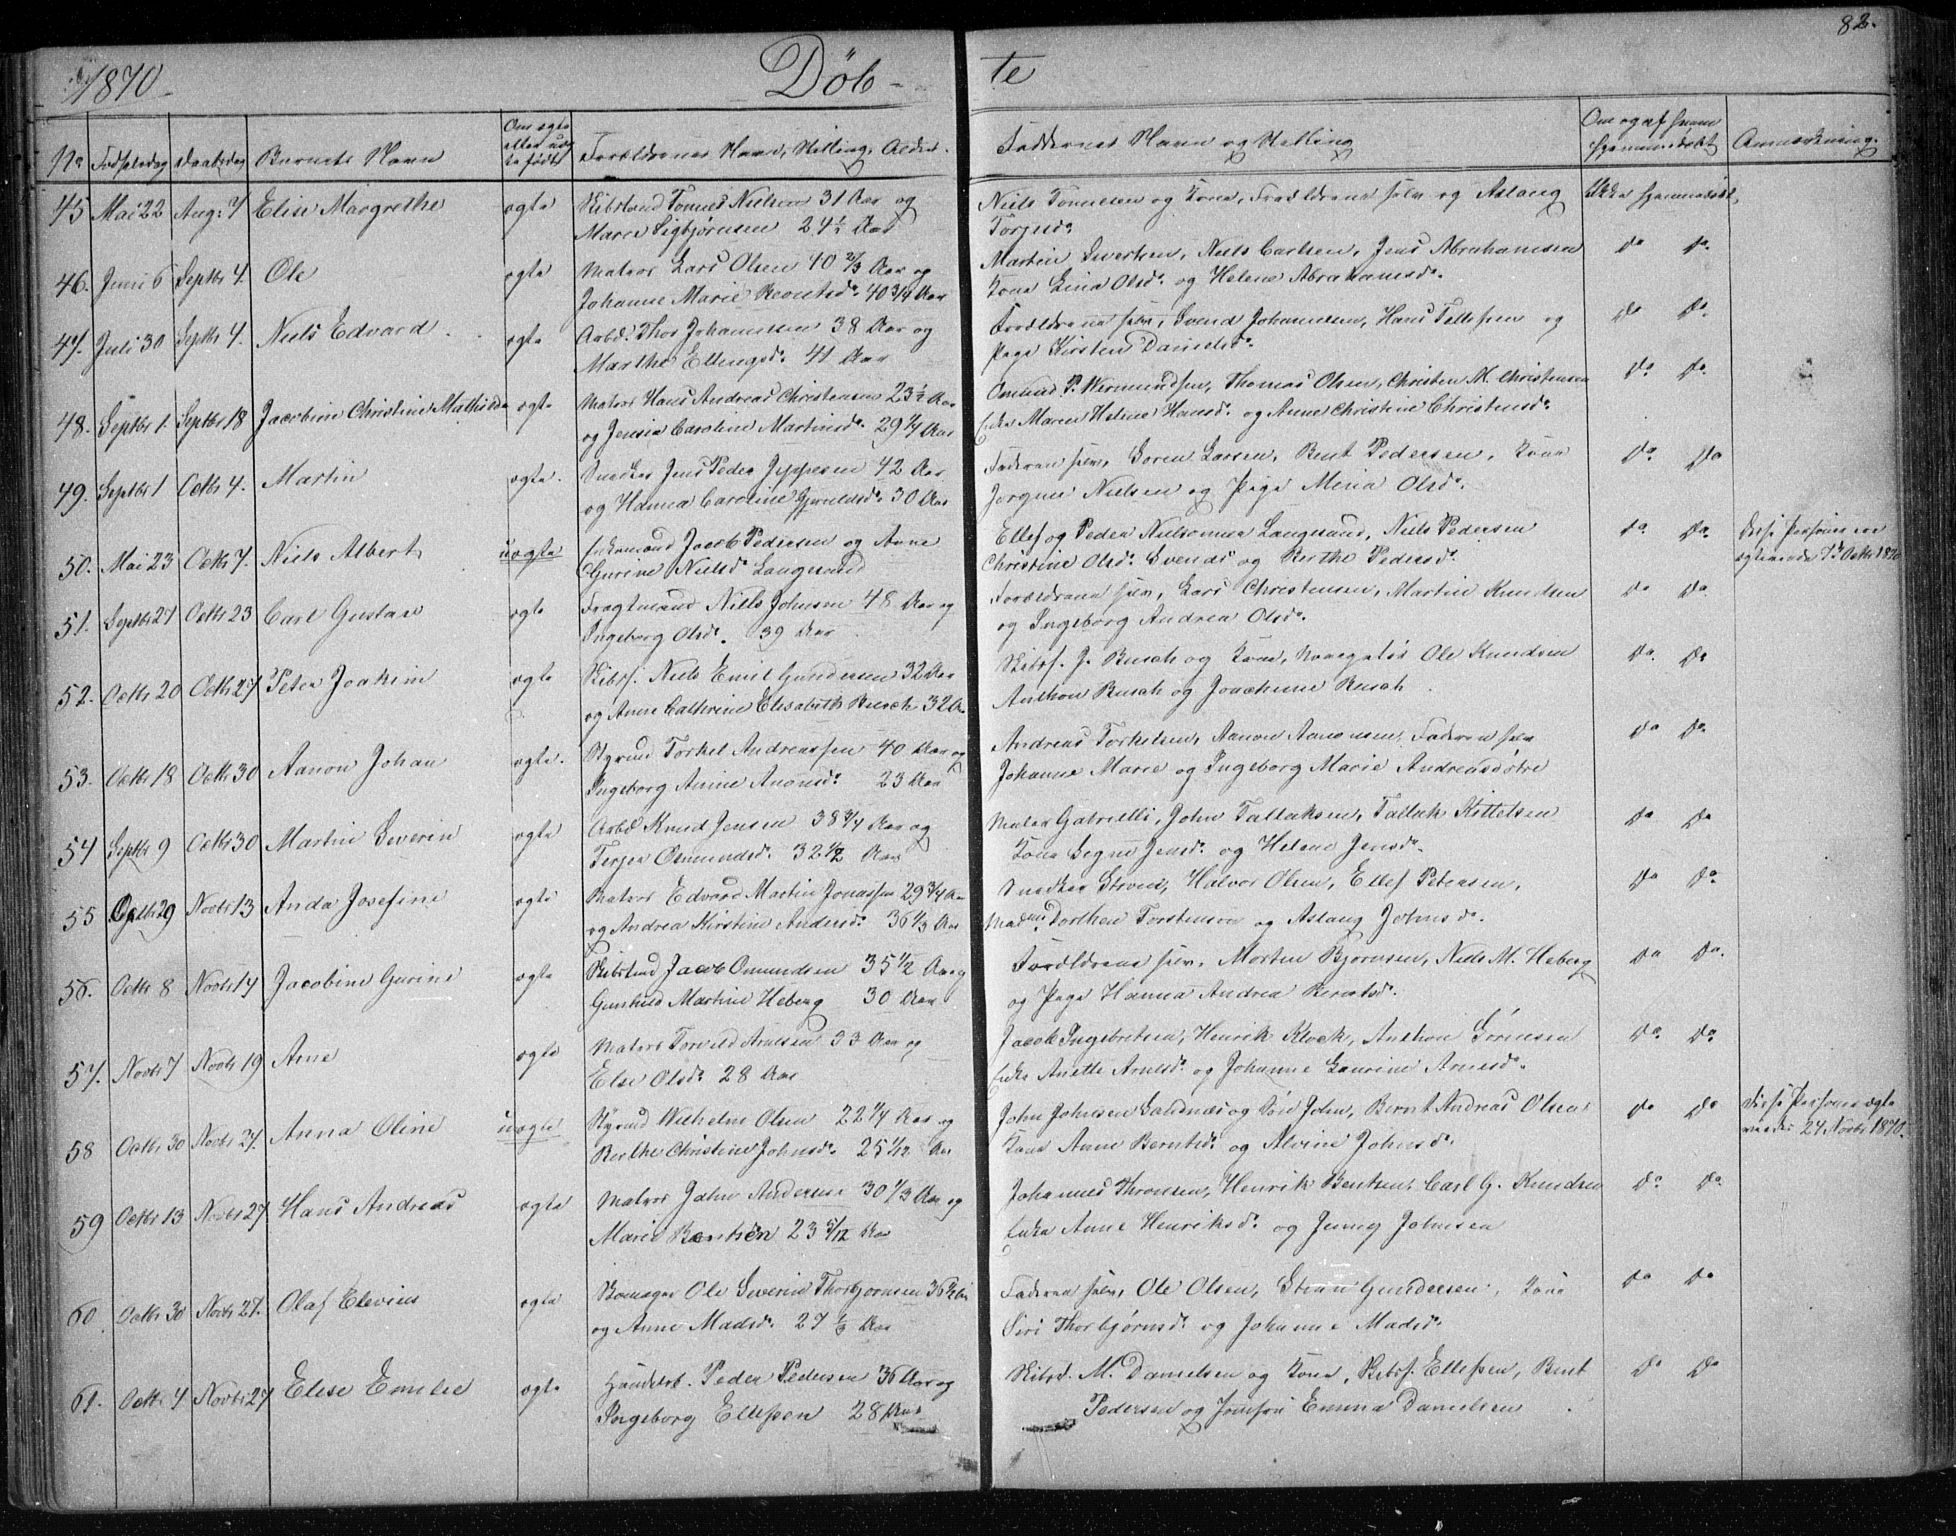 82.
1870 Döb- te
No Fødselsdag Daabsdag Barnets Navn Om ægte eller uægte født Forældrenes Navn, Stilling, Alder. Faddernes Navn og Stilling Om og af hvem hjemmedøbt Anmærkning.
45 Mai 22 Aug: 7 Elise Margrethe ægte Skibstmd Tønnes Nielsen 31 Aar og Niels Tønnesen og Kone, Forældrene selv og Aslaug Ikke hjemmedøbt
Maren Sigbjørnsen 24½ Aar Torjusd.
46. Juni 6 Septbr 4. Ole ægte Matros Lars Olsen 40 2/3 Aar og Martin Syvertsen, Niels Carlsen, Jens Abrahamsen Do Do
Johanne Marie Berntsd. 40 3/4 Aar Kone Lina Olsd. og Helene Abrahamsd.
47. Juli 30 Septbr 4. Niels Edvard ægte Arbd. Thor Johannessen 38 Aar og Forældrene selv, Svend Johannesen, Hans Tellefsen og Do Do
Marthe Ellingsd. 41 Aar Pige Kirsten Danielsd.
48. Septbr 1. Septbr 18 Jacobine Christine Mathilde ægte Matros Hans Andreas Christensen 23½ Aar Omund P. Wermundsen, Thomas Olsen, Christen M. Christensen Do Do
og Jensia Caroline Martinsd. 29 1/4 Aar Enke Maren Helene Hansd. og Anne Christine Christensd.
49. Septbr 1 Octbr 4. Martin ægte. Snedker Jens Peder Jeppesen 42 Aar Faderen selv, Søren Larsen, Bent Pedersen, Kone Do Do
og Hanna Caroline 30 Aar Jørgine Nielsen og Pige Mina Olsd.
50. Mai 23 Octbr 7. Niels Albert uægte Enkemand Jacob Pedersen og Anne Ellef og Peder Nielsønner Langsand, Niels Pedersen Do Do Disse Personer ere
Gurine Nielsd. Langsand Christine Olsd. Svends og Berthe Pedersd. ægteviede 7de Octbr 1870
51. Septbr 27 Octbr 23 Carl Gustav ægte Fragtmand Niels Johnsen 48 Aar og Forældrene selv, Lars Christensen, Martin Knudsen Do Do
Ingeborg Olsd. 39 Aar og Ingeborg Andrea Olsd.
52. Octbr 20 Octbr 27 Peter Joakim ægte Skibsf. Niels Emil Gundersen 32 Aar Skibsf. J. Busch og Kone, Ole Knudsen Do Do
og Anne Cathrine Elisabeth Busch 32 A Anthon Busch og Joachime Busch
53. Octbr 18 Octbr 30 Aanon Johan ægte. Styrmd Torkel Andreassen 40 Aar og Andreas Torkelsen, Aanon Aanonsen, Faderen selv Do Do
Ingeborg Amine Anonsd. 23 Aar Johanne Marie og Ingeborg Marie Andreasdøtre
54 Septbr 9 Octbr 30 Martin Severin ægte Arbd Knud Jensen 38 3/4 Aar og Maler Gabrielli, John Tallaksen, Tallak Kittelsen Do Do
Terjer Osmundsd. 32 1/2 Aar Kone Signe Jensd. og Helene Jensd.
55 Octbr 29 Novbr 13 Anda Josefine ægte Matros Edvard Martin Jonassen 29 3/4 Aar Snedker Halvor Olsen, Ellef Petersen, Do Do
og Andrea Kirstine Andersd. 36 1/3 Aar Mad Dorthea Torstensen og Aslaug Johnsd.
56. Octbr 8 Novbr 14 Jacobine Gurine ægte Skibstmd Jacob Omundsen 35 1/2 Aar og Forældrene selv, Morten Bjørnsen, Niels M. Heberg Do Do
Gunhild Martine Heberg 30 Aar og Pige Hanna Andrea Berntsd.
57. Novbr 7 Novbr 19 Arne ægte Matros Torvild Arnesen 33 Aar og Jacob Ingebretsen, Henrik Klock, Anthon Sörensen Do Do
Else Olsd. 28 Aar Enke Anette Arnesd. og Johanne Laurine Arnesd.
58 Octbr 30 Novbr 27. Anna Oline uægte Styrmd Wilhelm Olsen 22 1/4 Aar og John Johnsen Sandnæs og Søn John, Bernt Andreas Olsen Do Do Disse Personer ægte
Berthe Christine Johnsd. 25 1/12 Aar Kone Anne Berntsd. og Alvine Johnsd. viedes 27 Novbr 1870.
59 Octbr 13 Novbr 27 Hans Andreas ægte Matros John Andersen 30 1/3 Aar og Johannes Thronsen, Henrik Bentsen, Carl G. Knudsen Do Do
Maria Bentsen 23 5/12 Aar Enke Anne Henriksd. og Jenny Johnsen
60. Octbr 30 Novbr 27. Olaf Elevius ægte Ole Severin Thorbjørnsen 36 Aar Faderen selv, Ole Olsen, Gundersen, Kone Do Do
og Anne Madsd. 27 1/3 Aar Siri Thorbjørnsd. og Johanne Madsd.
61. Octbr 4 Novbr 27 Elise Emilie ægte Handelsb. Peder Pedersen 36 Aar og Skibsf. M. Danielsen og Kone, Skibsf. Ellefsen, Bent Do Do
Ingeborg Ellefsen 28 Aar Pedersen og Jomfru Emma Danielsen